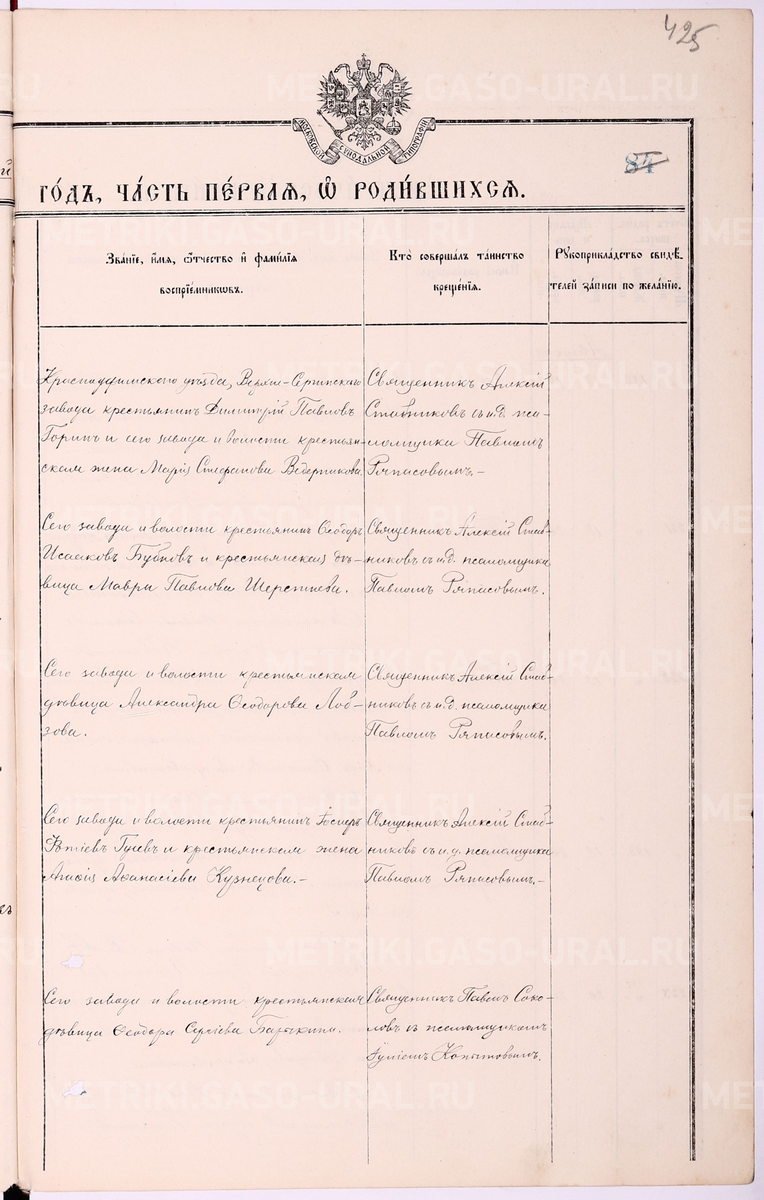 425
МОСКОВСКОЙ СѴНОДАЛЬНОЙ ТИПОГРАФІИ
84
ГО́ДЪ, ЧА́СТЬ ПЕ́РВАЯ, Ѡ҆ РОДИ́ВШИХСЯ.
Зва́ніе, и҆́мя, ѻ҆́тчество и҆ фами́лія
воспріе́мниковъ.
Кто̀ соверша́лъ та́инство
креще́нія.
Рукоприкла́дство свидѣ́-
телей за́писи по жела́нію.
Красноуфимскаго уѣзда, Верхне-Сергинскаго
завода крестьянинъ Димитрій Павловъ
Горинъ и сего завода и волости крестьян-
ская жена Марія Стефанова Ведерникова.
Священникъ Алексій
Ставниковъ съ и.д. пса-
ломщика Павломъ
Ряпасовымъ.-
Сего завода и волости крестьянинъ Ѳеодоръ
Исааковъ Бубновъ и крестьянская дѣ-
вица Мавра Павлова
Священникъ Алексій Став-
никовъ съ и.д. псаломщика
Павломъ Ряпасовымъ.
Сего завода и волости крестьянская
дѣвица Александра Ѳеодорова Лоб-
зова.
Священникъ Алексій Став-
никовъ съ и.д. псаломщика
Павломъ Ряпасовымъ.
Сего завода и волости крестьянинъ
Гусевъ и крестьянская жена
Агафія Аѳанасіева Кузнецова.-
Священникъ Алексій Став-
никовъ съ и.д. псаломщика
Павломъ Ряпасовымъ.-
Сего завода и волости крестьянская
дѣвица Ѳеодора Сергіева
Священникъ Павелъ Соко-
ловъ съ псаломщикомъ
Копытовымъ.
METRIKI.GASO-URAL.RU